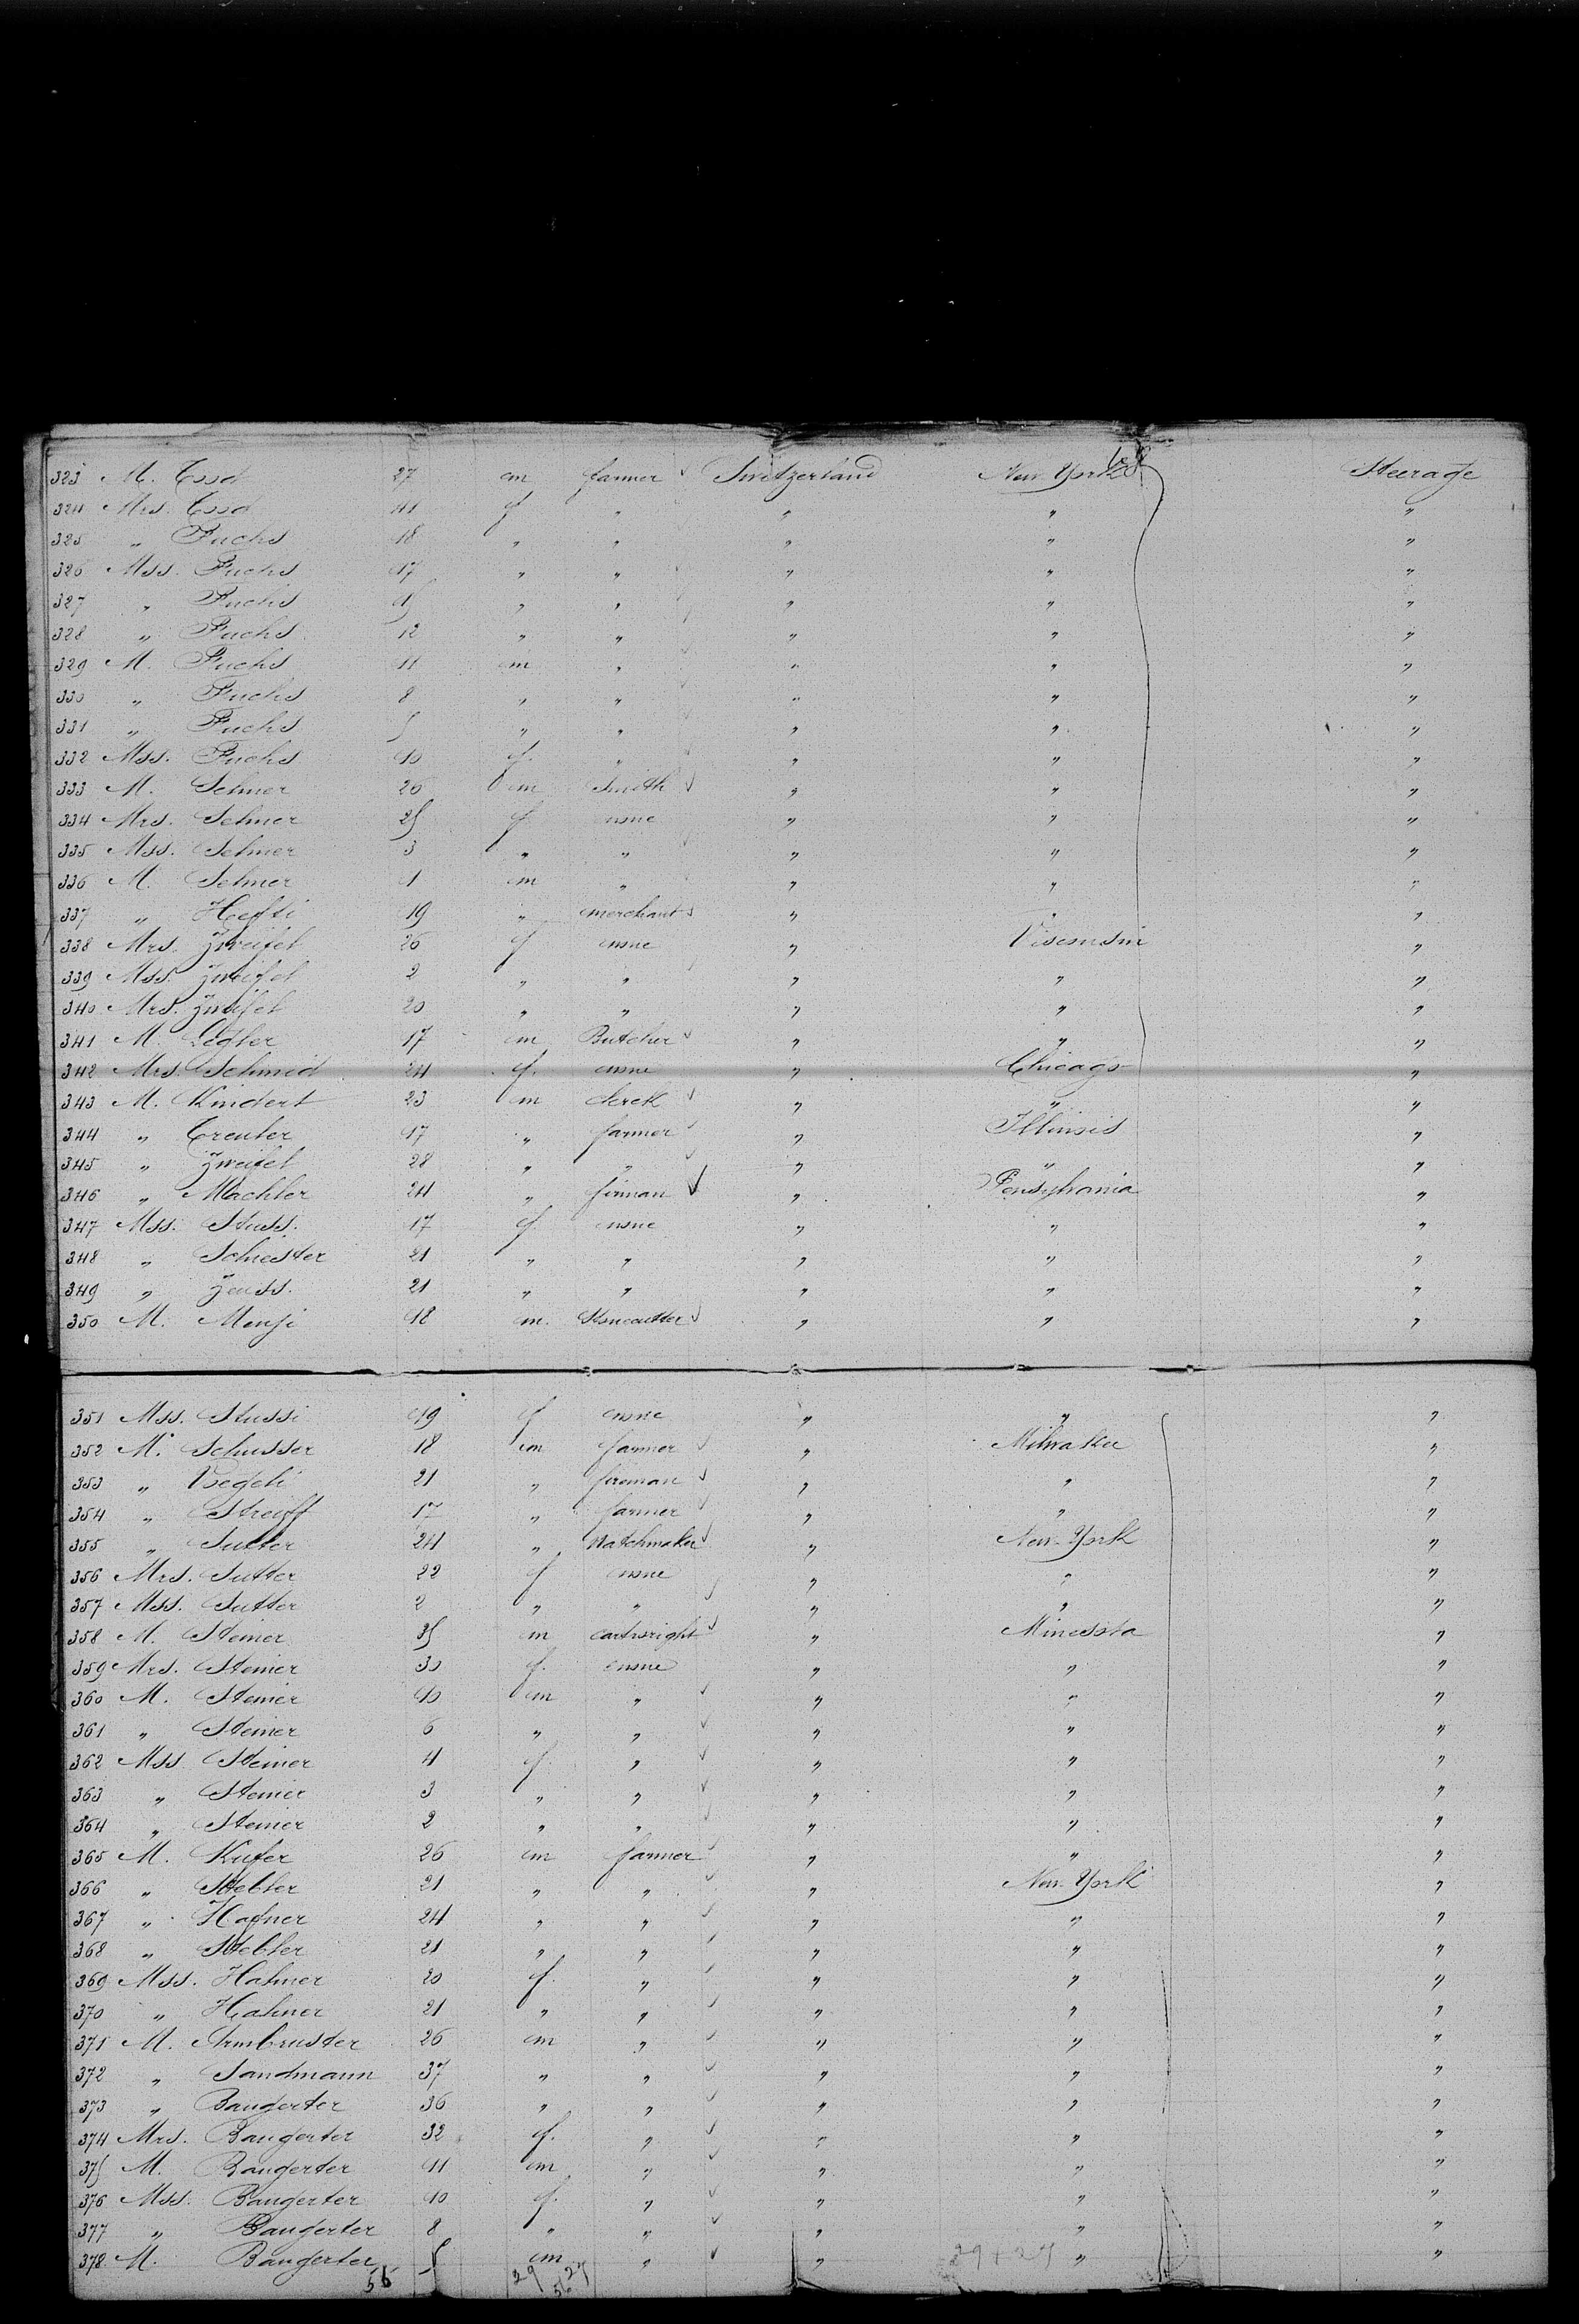 68
323 M. Essa 27 m farmer ✓ Switzerland New. York Steerage
324 Mrs. Essa 41 f " " " "
325 " Fuchs 18 " " " " "
326 Mss. Fuchs 17 " " " " "
327 " Fuchs 15 " " " " "
328 " Fuchs 12 " " " " "
329 M. Fuchs 11 m " " " "
330 " Fuchs 8 " " " " "
331 " Fuchs 5 " " " " "
332 Mss. Fuchs 10 f. " " " "
333 M. Selmer 26 m Smith ✓ " " "
334 Mrs. Selmer 25 f none " " "
335 Mss. Selmer 3 " " " " "
336 M. Selmer 1 m " " " "
337 " Hefti 19 " merchant ✓ " " "
338 Mrs. Zweifel 26 f none " Visconsin "
339 Mss. Zweifel 2 " " " " "
340 Mrs. Zweifel 20 " " " " "
341 M. Legler 17 m Butcher ✓ " " "
342 Mrs. Schmid 24 f. none " Chicago "
343 M. Kindert 23 m clerck ✓ " " "
344 " Creuler 17 " farmer ✓ " Illinois "
345 " Zweifel 28 " " ✓ " " "
346 " Machler 24 " firman ✓ " Pensylvania "
347 Mss. Stuss. 17 f none " " "
348 " Schiester 21 " " " " "
349 " Zeuss. 21 " " " " "
350 M. Menji 18 m. Stonecutter ✓ " " "
351 Mss. Stussi 19 f none " " "
352 M. Schusser 18 m farmer ✓ " Milwakee "
353 " Vogeli 21 " fireman ✓ " " "
354 " Streiff 17 " farmer ✓ " " "
355 " Sutter 24 " Watchmaker ✓ " New. York "
356 Mrs. Sutter 22 f none " " "
357 Mss. Sutter 2 " " ✓ " " "
358 M. Steiner 35 m cartwright ✓ " Minessota "
359 Mrs. Steiner 30 f. none " " "
360 M. Steiner 10 m " ✓ " " "
361 " Steiner 6 " " ✓ " " "
362 Mss Steiner 4 f. " ✓ " " "
363 " Steiner 3 " " ✓ " " "
364 " Steiner 2 " " ✓ " " "
365 M. Kufer 26 m farmer ✓ " " "
366 " Stebler 21 " " ✓ " New. York "
367 " Hafner 24 " " ✓ " " "
368 " Stebler 21 " " ✓ " " "
369 Mss. Hahner 20 f. " ✓ " " "
370 " Hahner 21 " " ✓ " " "
371 M. Armbruster 26 m " ✓ " " "
372 " Sandmann 37 " " ✓ " " "
373 " Bangerter 36 " " ✓ " " "
374 Mrs. Bangerter 32 f. " ✓ " " "
375 M. Bangerter 11 m " ✓ " " "
376 Mss. Bangerter 10 f. " ✓ " " "
377 " Bangerter 8 " " ✓ " " "
378 M. Bangerter 5 m " ✓ " " "
56 29 27 56 29+27